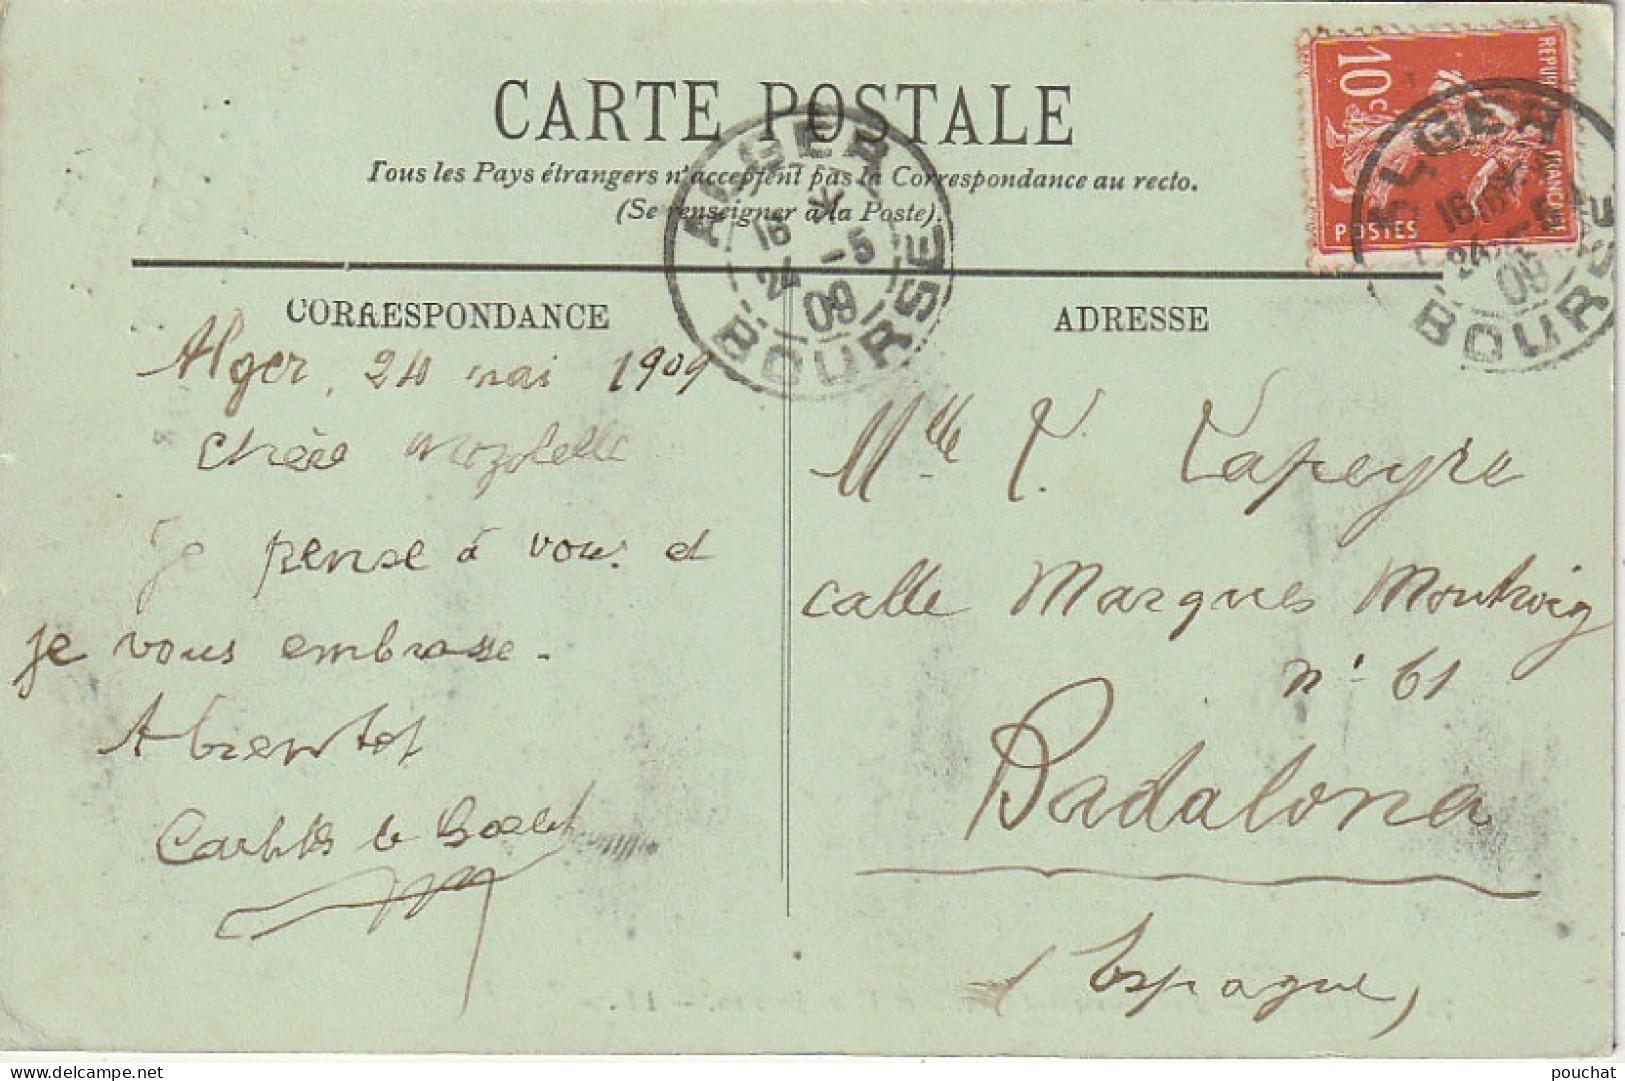 CARTE POSTALE
Tous les Pays étrangers n'acceptent pas la Correspondance au recto.
(Se renseigner à la Poste).
ALGER BOURSE
16 24 -5 09
10c
REPUB FRANCAISE
POSTES
ALGER BOURSE
16 24 -5 09
CORRESPONDANCE
Alger, 24 mai 1909
chère
je pense à vous et
je vous embrasse.
A bientot
ADRESSE
Mlle Y. Lapeyre
calle Marques Montroig
n° 61
Badalona
(Espagne)
pouchat